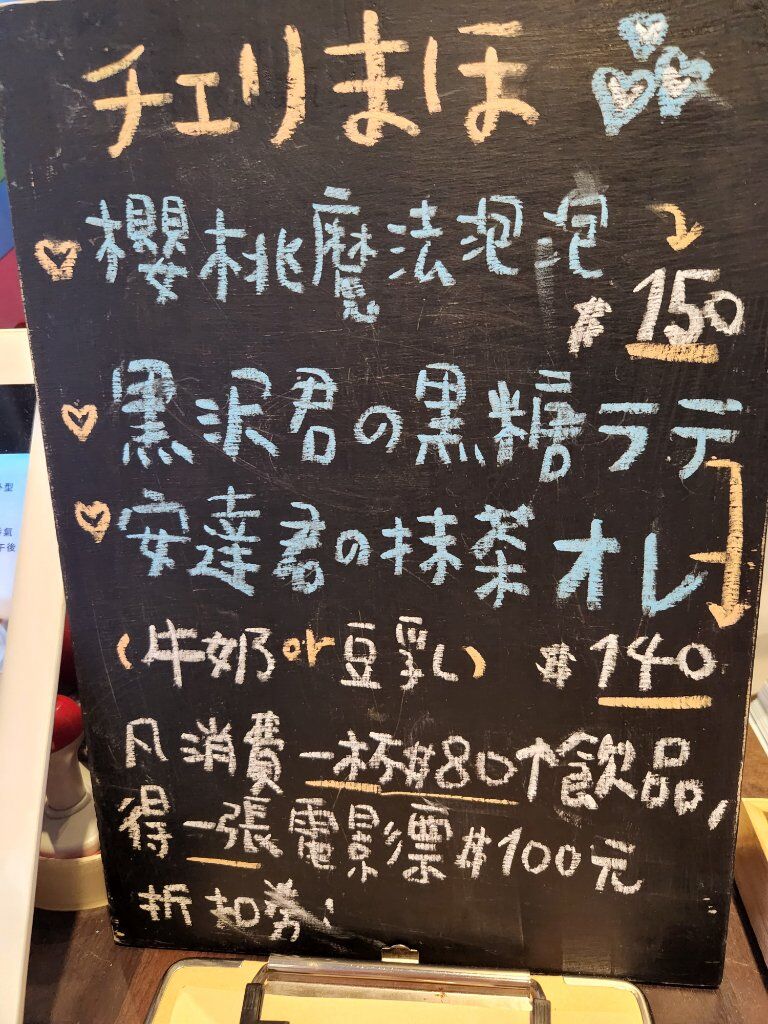 チェリまほ
櫻桃魔法泡泡
$150
黒沢君の黒糖ラテ
安達君の抹茶オレ
(牛奶or豆乳) $140
凡消費一杯$80↑飲品,
得一張電影票$100元
折扣劵!
型
氣
午後